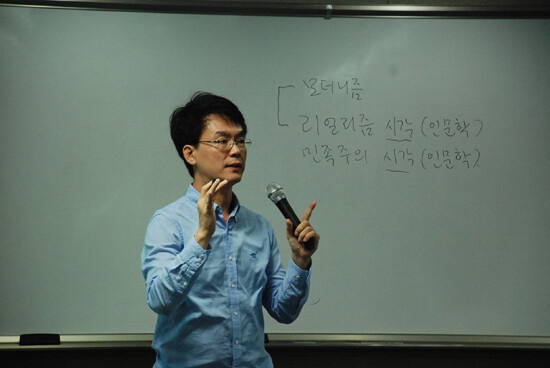 모더니즘
리얼리즘 시각 (인문학)
민족주의 시각 (인문학)